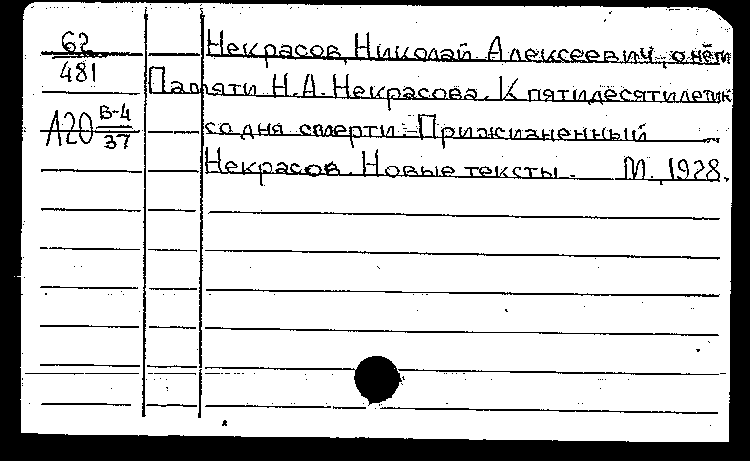 62
481
Л20 В-4
37
Некрасов, Николай Алексеевич, о нём
Памяти Н.А. Некрасова. К пятидесятилетию
со дня смерти. Прижизненный
Некрасов. Новые тексты. М., 1928.